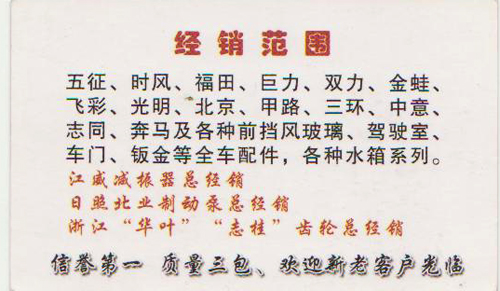 经销范围
五征、时风、福田、巨力、双力、金蛙、
飞彩、光明、北京、甲路、三环、中意、
志同、奔马及各种前挡风玻璃、驾驶室、
车门、钣金等全车配件，各种水箱系列。
江威减振器总经销
日照北业制动泵总经销
浙江“华叶”“志桂”齿轮总经销
信誉第一 质量三包、欢迎新老客户光临